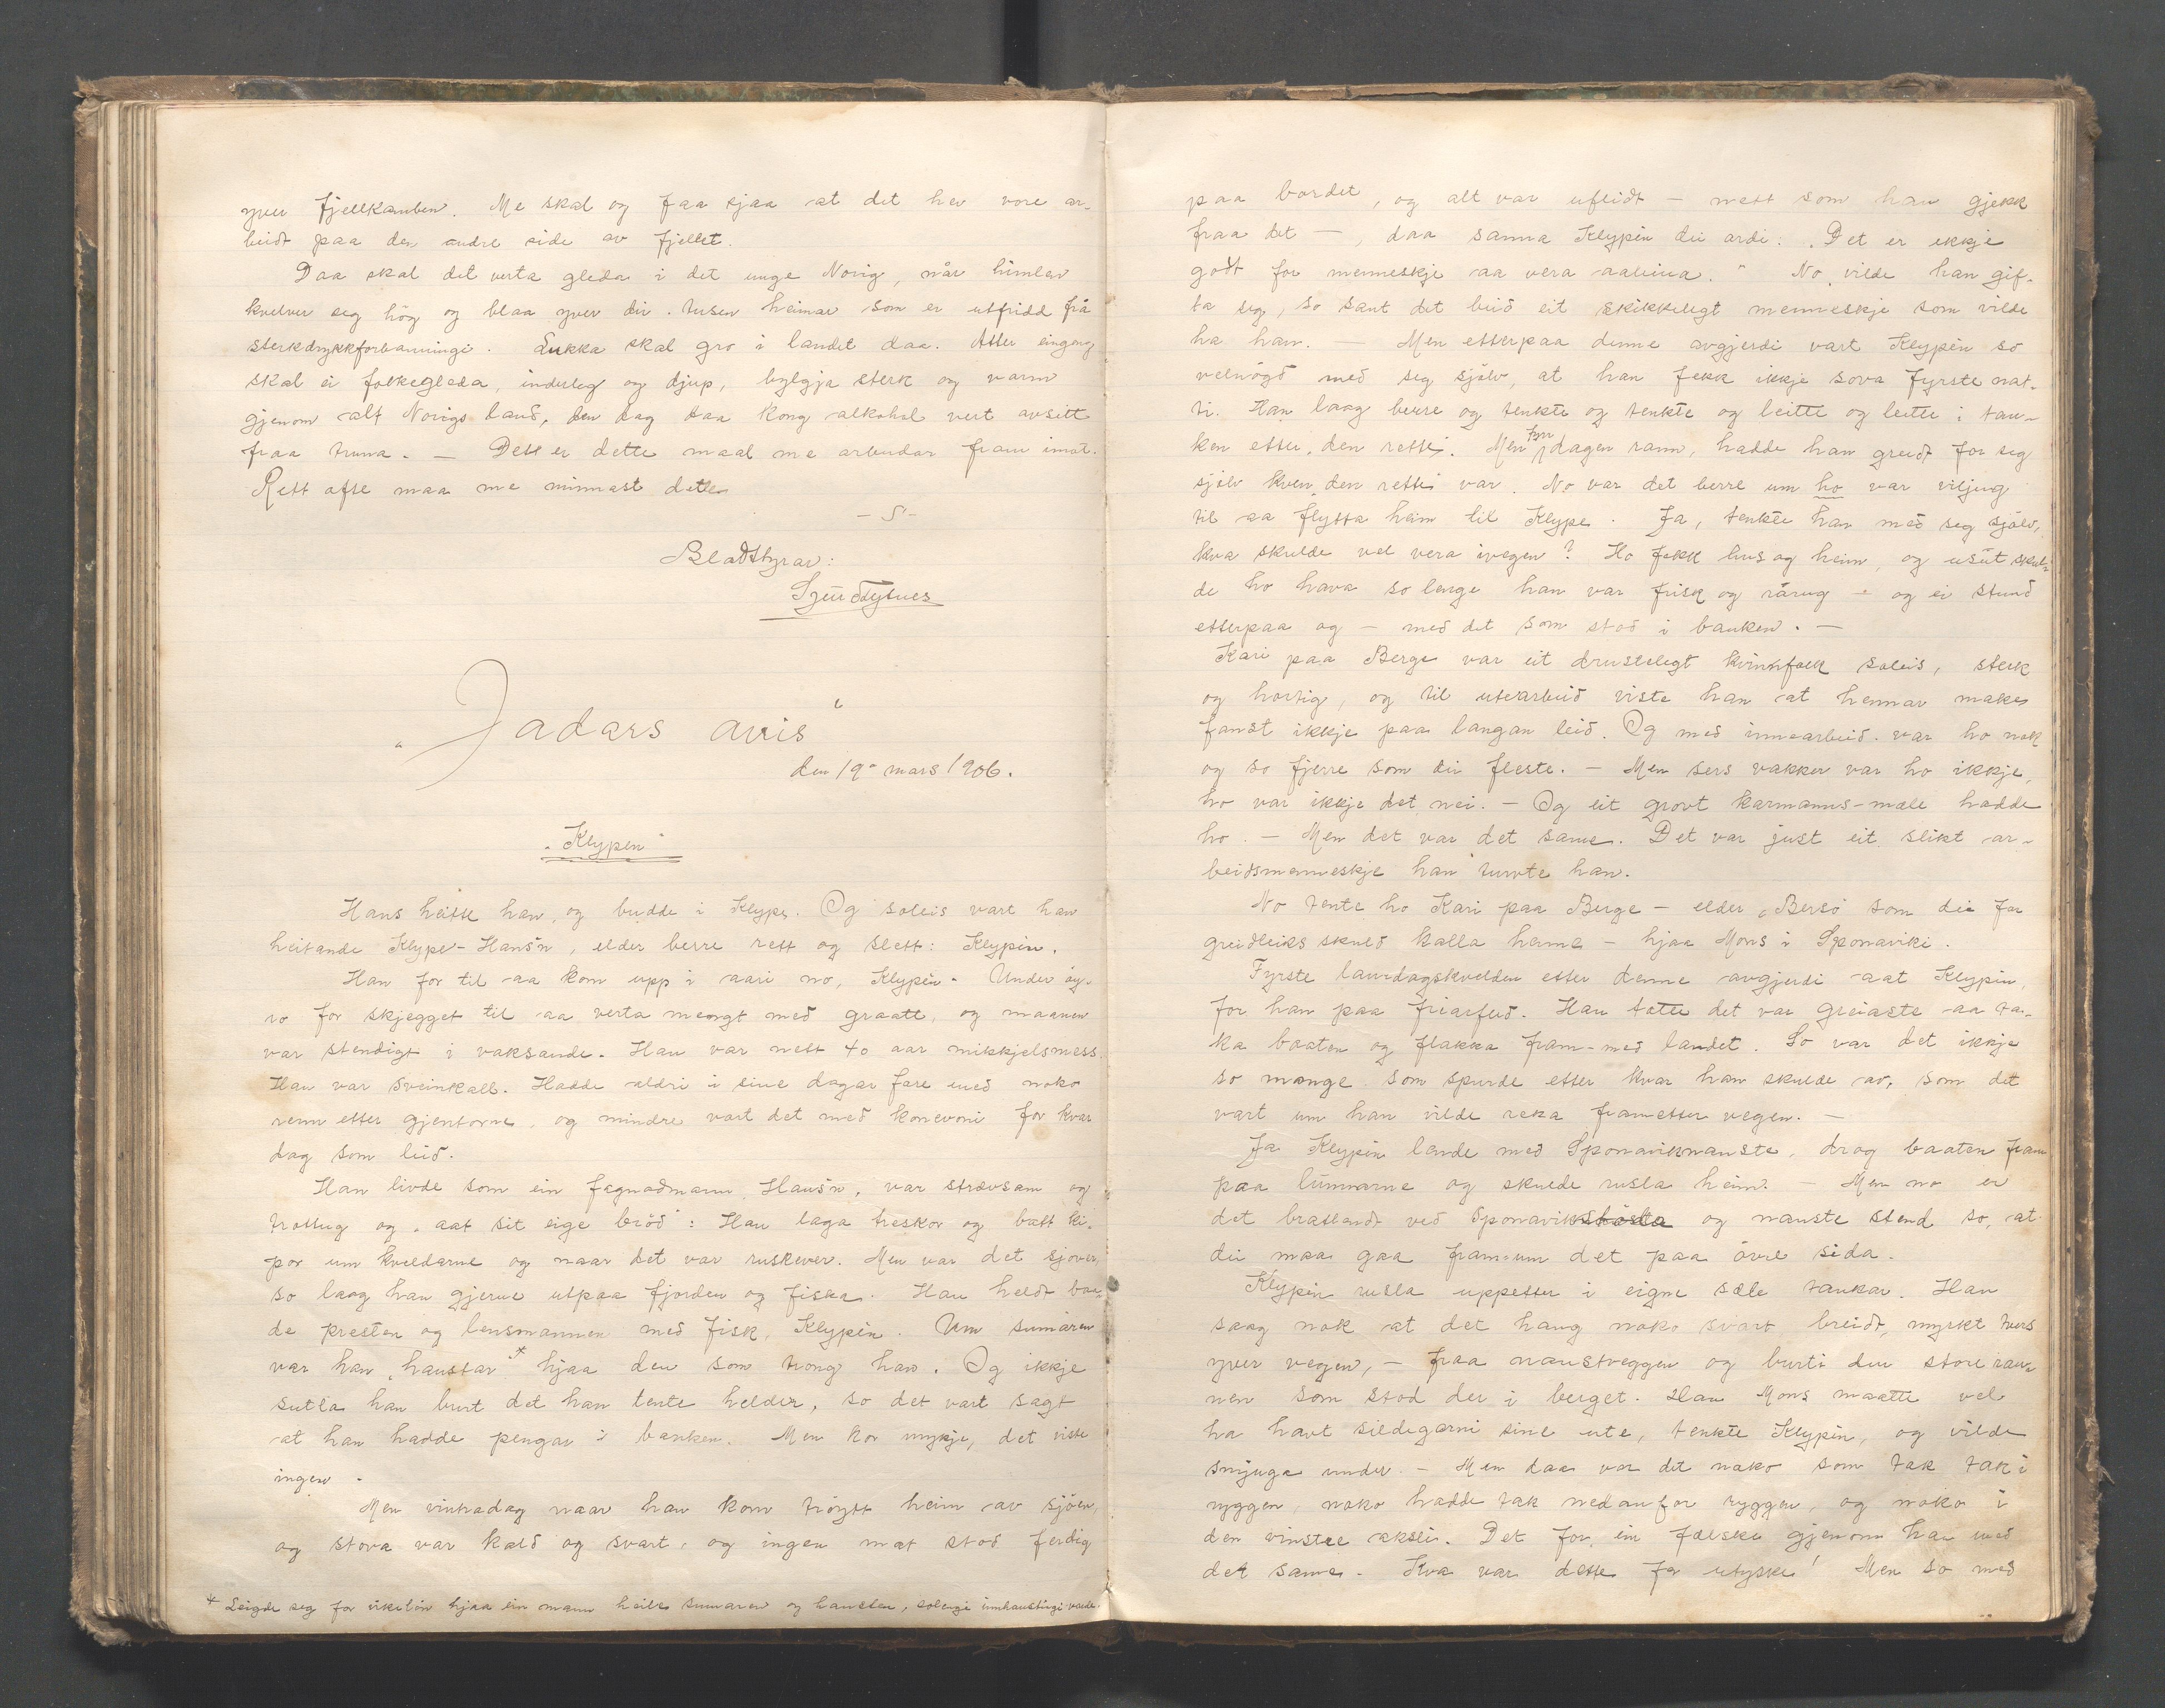 yver fjellkanben. Me skal og faa sjaa at det hev vore ar-
beidt paa den andre side av fjellet.
Daa skal det verta gleda i det unge Norig, når himlen
kvelver seg høg og blaa yver dei tusen heimar som er utfridd frå
sterkdrykkforbanningi. Lukka skal gro i landet daa. Atter eingong
skal ei folkegleda, inderleg og djup, bylgja sterk og varm
gjenom alt Norigs land, den dag daa kong alkohol vert avsett
fraa truna. — Dett er dette maal me arbeidar fram imot.
Rett ofte maa me minnast dette
— S —
Bladstyrar:
Sjeu Tytnes
„Jadars avis“
den 19de mars 1906.
„Klypen“
Hans heitte han, og budde i Klype. Og soleis vart han
heitande Klype-Hans'n, elder berre rett og slett: Klypin.
Han for til aa kom upp i aari no, Klypin. Under øy-
ro for skjegget til aa verta mengt med graatt, og maanen
var stendigt i vaksande. Han var nett 40 aar mikkjelsmess.
Han var sveinkall. Hadde aldri i sine dagar fare med noko
renn etter gjentorne, og mindre vart det med konevoni for kvar
dag som leid.
Han livde som ein fagnadmann, Hans'n, var strævsam og
trottug og „aat sit eige brød“: Han laga treskor og batt ki-
por um kveldarne og naar det var ruskever. Men var det sjøver,
so laag han gjerne utpaa fjorden og fiska. Han heldt baa-
de presten og lensmannen med fisk, Klypin. Um sumaren
var han „haustar“* hjaa den som trong han. Og ikkje
sutla han burt det han tente helder, so det vart sagt
at han hadde pengar i banken. Men kor mykje, det viste
ingen.
Men vintradag naar han kom trøytt heim av sjøen,
og stova var kald og svart, og ingen mat stod ferdig
* Leigde seg for vikeløn hjaa ein mann heile sumaren og hausten, solengi innhaustingi varde.
paa bordet, og alt var ufleidt — nett som han gjekk
fraa det —, daa sanna Klypin dei ordi: „Det er ikkje
godt for menneskje aa vera aaleina.“ No vilde han gif-
ta seg, so sant det beid eit skikkelegt menneskje som vilde
ha han. — Men etterpaa denne avgjerdi vart Klypin so
velnøgd med seg sjølv, at han fekk ikkje sova fyrste nat-
ti. Han laag berre og tenkte og tenkte og leitte og leitte i tan-
ken etter „den rette“. Men fyrr dagen rann, hadde han greidt for seg
sjølv kven „den rette“ var. No var det berre um ho var viljug
til aa flytta heim til Klype. Ja, tenkte han med seg sjølv,
kva skulde vel vera ivegen? Ho fekk hus og heim, og usùt skul-
de ho hava so lenge han var frisk og rårug — og ei stund
etterpaa og — med det som stod i banken. —
Kari paa Berge var eit drustelegt kvinnfolk soleis, sterk
og hortig, og til utearbeid viste han at hennar make
fanst ikkje paa langan leid. Og med innearbeid var ho nok
og so fjerre som dei fleste. — Men sers vakker var ho ikkje,
ho var ikkje det, nei. — Og eit grovt karmanns-mæle hadde
ho. — Men det var det same. Det var just eit slikt ar-
beidsmenneskje han turvte han.
No tente ho Kari paa Berge — elder „Berso“ som dei for
greidleiks skuld kalla henne — hjaa Mons i Sponaviki.
Fyrste laurdagskvelden etter denne avgjerdi aat Klypin,
for han paa friarferd. Han totte det var greiaste aa ta-
ka baaten og flakka fram-med landet. So var det ikkje
so mange som spurde etter kvar han skulde av, som det
vart um han vilde reka frametter vegen. —
Ja Klypin lande med Sponaviknauste, drog baaten fram
paa lunnarne og skulde rusla heim. — Men no er
det brattlendt ved Sponavikstøda og nauste stend so, at
dei maa gaa fram-um det paa øvre sida.
Klypin rusla uppetter i eigne sæle tankar. Han
saag nok at det hang noko svart breidt, myrkt tvers
yver vegen, — fraa naustveggen og burti den store rau-
nen som stod der i berget. Han Mons maatte vel
ha havt sildegarni sine ute, tenkte Klypin, og vilde
smjuga under. — Men daa var det noko som tok tak i
ryggen, noko hadde tak nedanfor ryggen, og noko i
den vinstre aksli. Det for ein fælske gjenom han med
det same. Kva var dette for utyske! Men so med